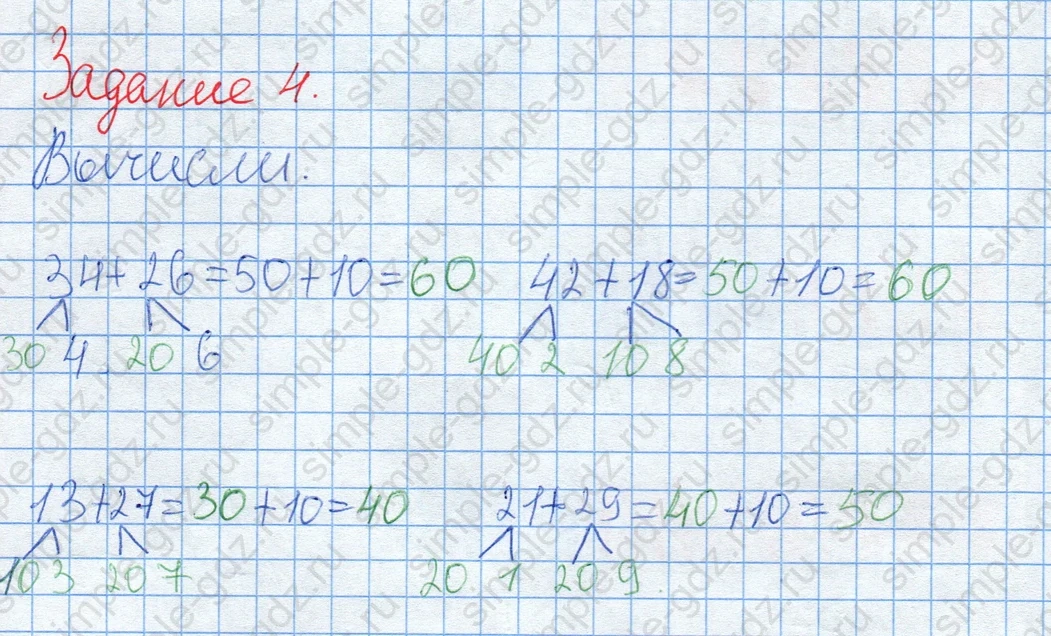 Задание 4.
Вычисли.
34+26=50+10=60 42+18=50+10=60
30 4 20 6 40 2 10 8
13+27=30+10=40 21+29=40+10=50
10 3 20 7 20 1 20 9
simple-gdz.ru